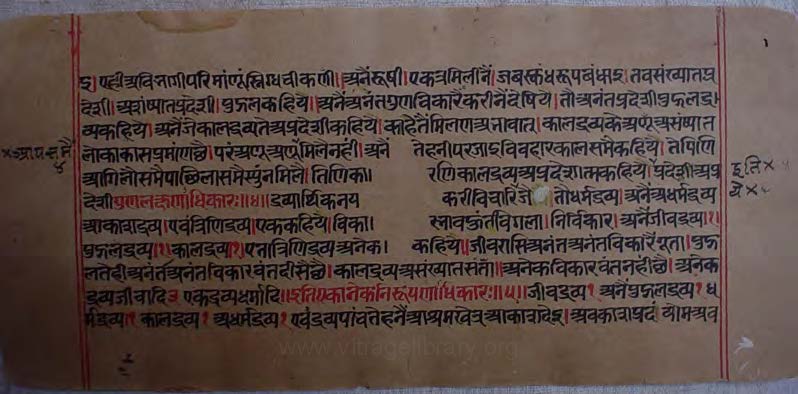 इ। एही अविभागी परिमांणूं स्निग्ध चीकणी। अनैं रूषी। एकत्र मिलीनैं। जब स्कंध रूप बंधाइ। तव संख्यात प्र
देशी। असंष्यात प्रदेशी। पुजल कहियै।। अनैं अनंत गुण विकारैं करीनैं देषियै। तौ अनंत प्रदेशी पुजल द्र
व्य कहियै। अनैं जे काल द्रव्य ते अप्रदेशी कहियै। काहे तैं मिलण अभावात्। काल द्रव्य के अणू असंष्यात
लोकाकास प्रमांण छै। परं अणू अणूं मिलै नहीं। अनैं तेहनी परजाइ विवहार काल समै कहियै। ते पिणि
आगिलौ समै पाछिला समैस्युं न मिलै। तिणि का रणि काल द्रव्य अप्रदेशात्मक कहियै। प्रदेशी अप्र
देशी द्रव्यार्थिक नय करी विचारिजै तो धर्म द्रव्य। अनैं अधर्म द्रव्य
आकाश द्रव्य। एवं त्रिणि द्रव्य। एक कहियै। विका। निर्विकार। अनैं जीव द्रव्य।१।
पुजल द्रव्य।१। काल द्रव्य।१। एता त्रिणि द्रव्य अनेक। कहियै।। जीव रासि अनंत अनंत विकारैं पुज
ल तेही अनंत अनंत विकारवंत दीसै छै। काल द्रव्य असंख्यात सतां।। अनेक विकारवंत नहीं छै। अनेक
द्रव्य जीवादि ३ एक द्रव्य धर्मादि।। इति एकानेक निरूपणाधिकारः।।५।। जीव द्रव्य १ अनैं पुजल द्रव्य १ ध
र्म द्रव्य।१ काल द्रव्य १ अधर्म द्रव्य १ एवं द्रव्य पांच तेहनैं आश्रम खेत्र आकाश देइ। अवकाश प्रदं व्योम अव
www.vitragelibrary.org